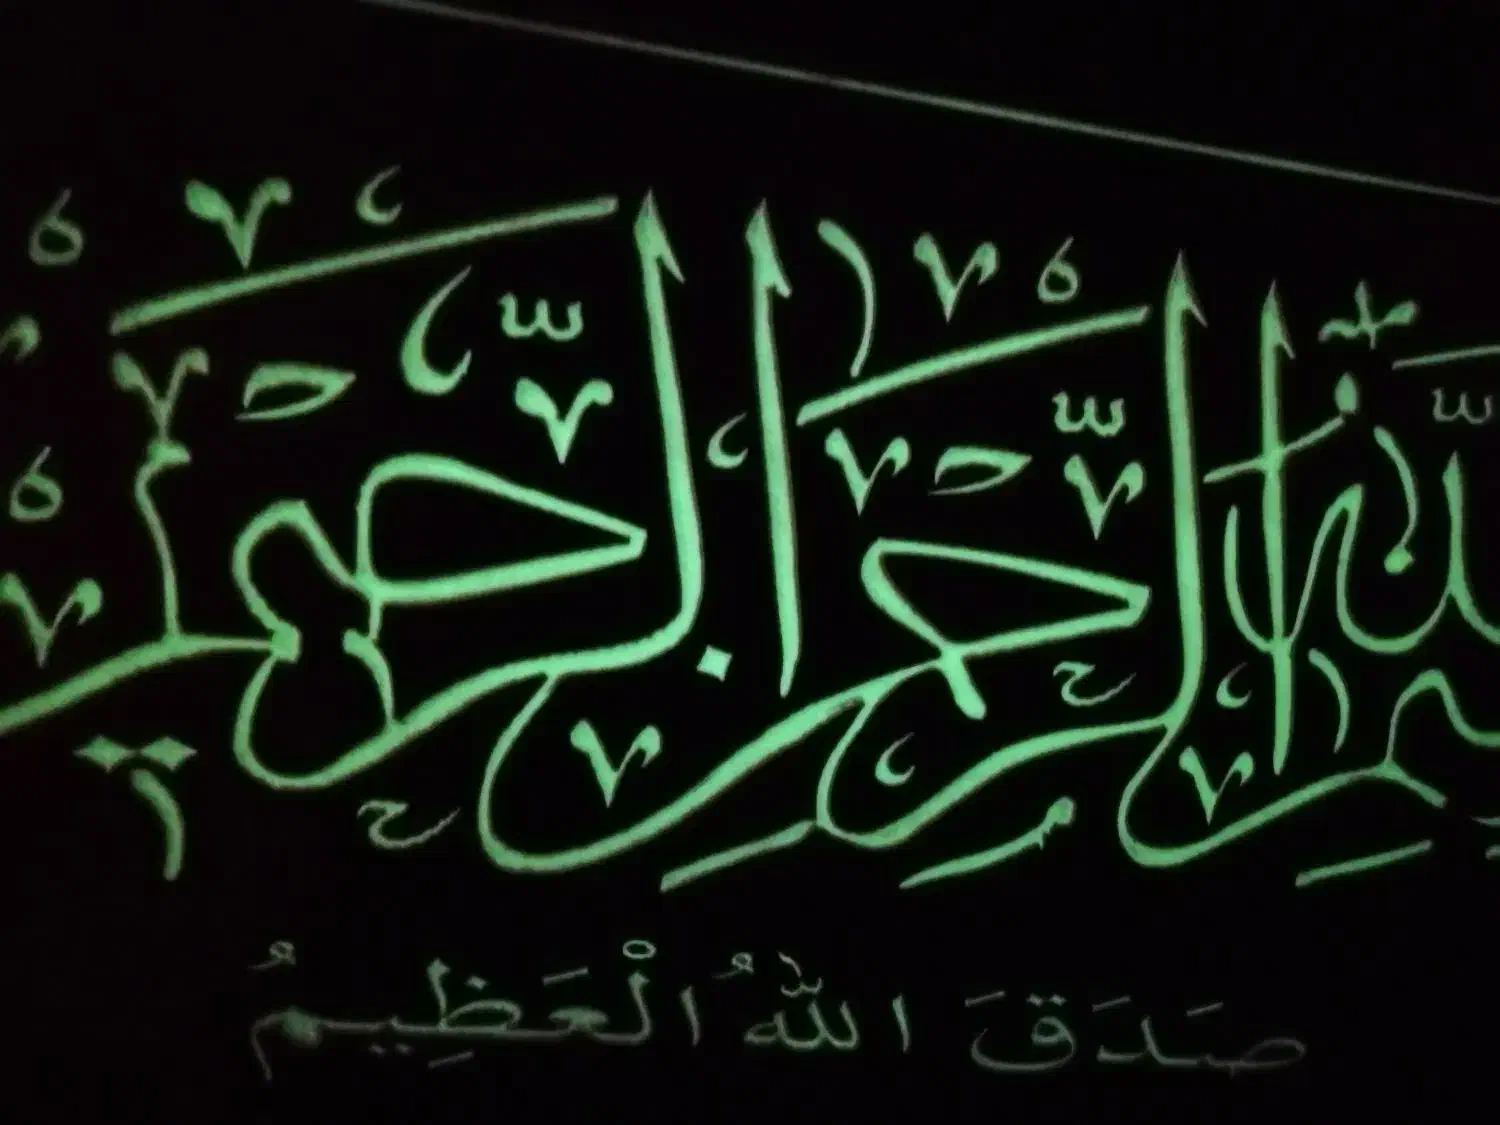 بسم الله الرحمن الرحيم
صَدَقَ اللّٰهُ الْعَظِيمُ